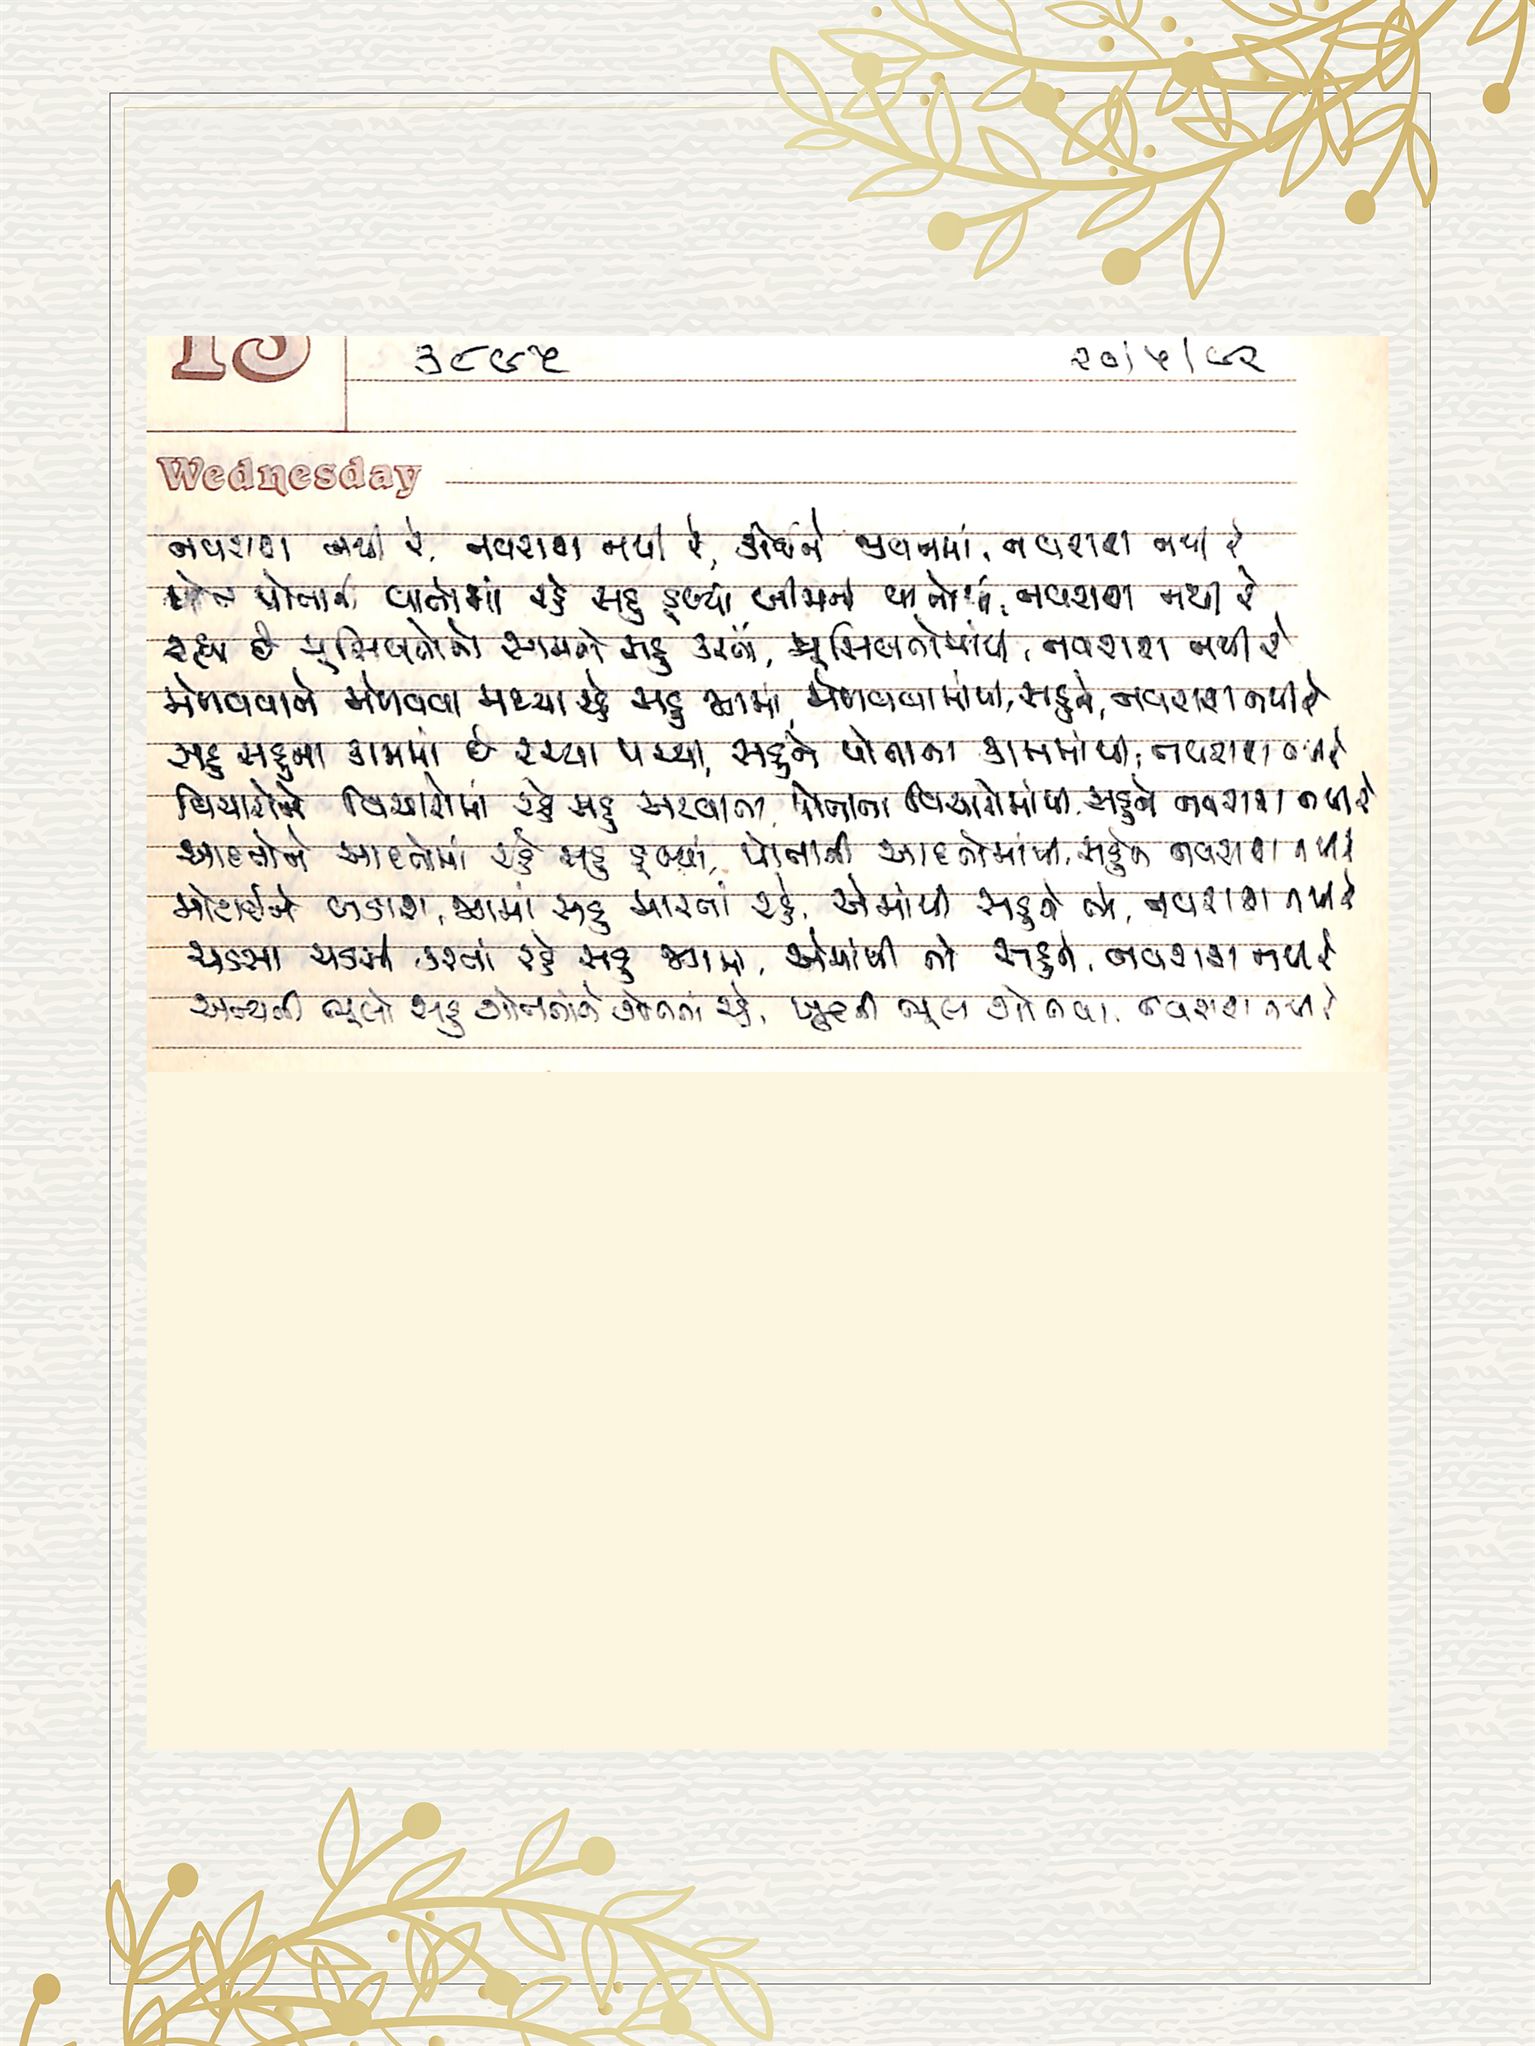 13 ૩૮૯૫ ૨૦/૫/૯૨
Wednesday
નવરાશ નથી રે, નવરાશ નથી રે, કોઈને જીવનમાં, નવરાશ નથી રે
પોતાની વાતોમાં રહે સહુ ડૂબ્યાં, બીજાની વાતોમાં, નવરાશ નથી રે
રહ્યા છે મુસીબતોનો સામનો સહુ કરતાં, મુસીબતોમાંથી, નવરાશ નથી રે
મેળવવાને મેળવવા મથ્યા રહે સહુ જગમાં, મેળવવામાંથી, સહુને, નવરાશ નથી રે
સહુ સહુના કામમાં છે રચ્યા પચ્યા, સહુને પોતાના કામમાંથી, નવરાશ નથી રે
વિચારોને વિચારોમાં રહે સહુ સરવાતા, પોતાના વિચારોમાંથી, સહુને નવરાશ નથી રે
આદતોને આદતોમાં રહે સહુ ડૂબ્યાં, પોતાની આદતોમાંથી, સહુને નવરાશ નથી રે
મોટાઈને બડાશ, જગમાં સહુ મારતાં રહે, એમાંથી સહુને તો, નવરાશ નથી રે
ચડસા ચડસી કરતાં રહે સહુ જગમાં, એમાંથી તો સહુને, નવરાશ નથી રે
અન્યની ભૂલો સહુ ગોતતાંને ગોતતાં રહે, ખુદની ભૂલ ગોતવા, નવરાશ નથી રે